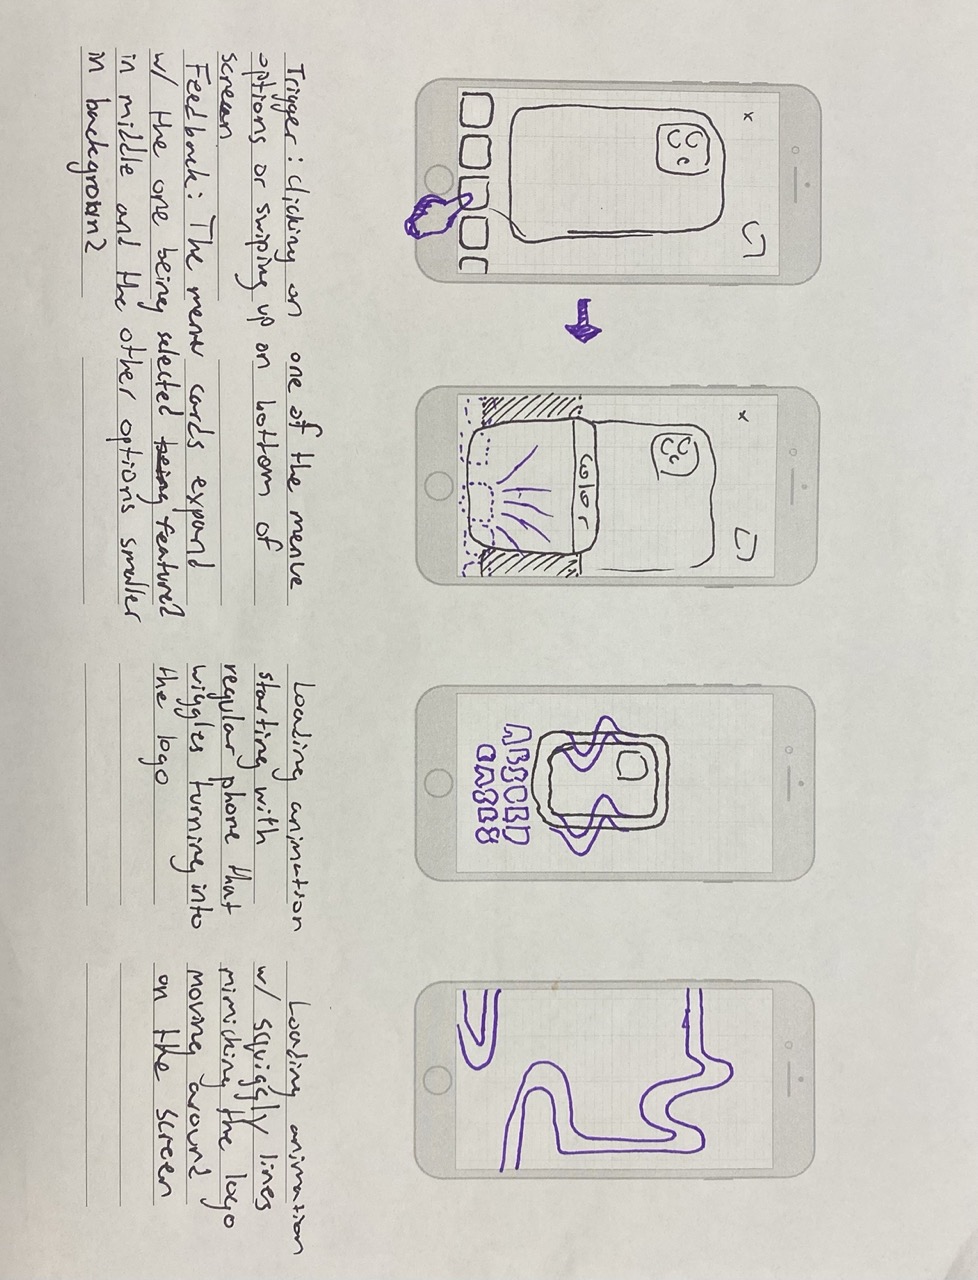 color
Trigger: clicking on one of the menue
options or swiping up on bottom of
screen
Feedback: The menu cards expand
w/ the one being selected being featured
in middle and the other options smaller
in background
Loading animation
starting with
regular phone that
wiggles turning into
the logo
Loading animation
w/ squiggly lines
mimicking the logo
moving around
on the screen